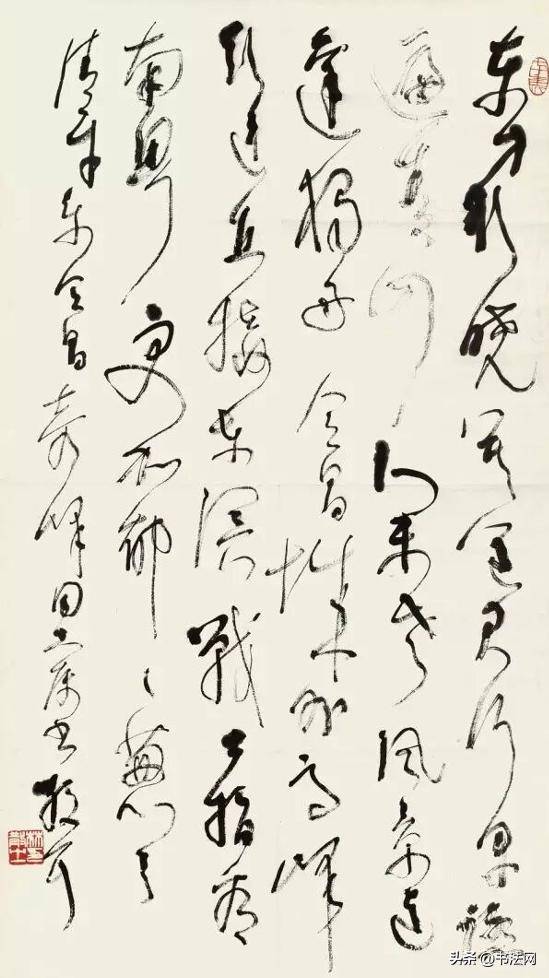 东方欲晓莫道君行早踏
遍青山人未老风景这
边独好会昌城外高峰
颠连直接东溟戰士指看
南粤更加郁郁葱葱
清平乐会昌奇峰同志属书散耳
头条 @书法网